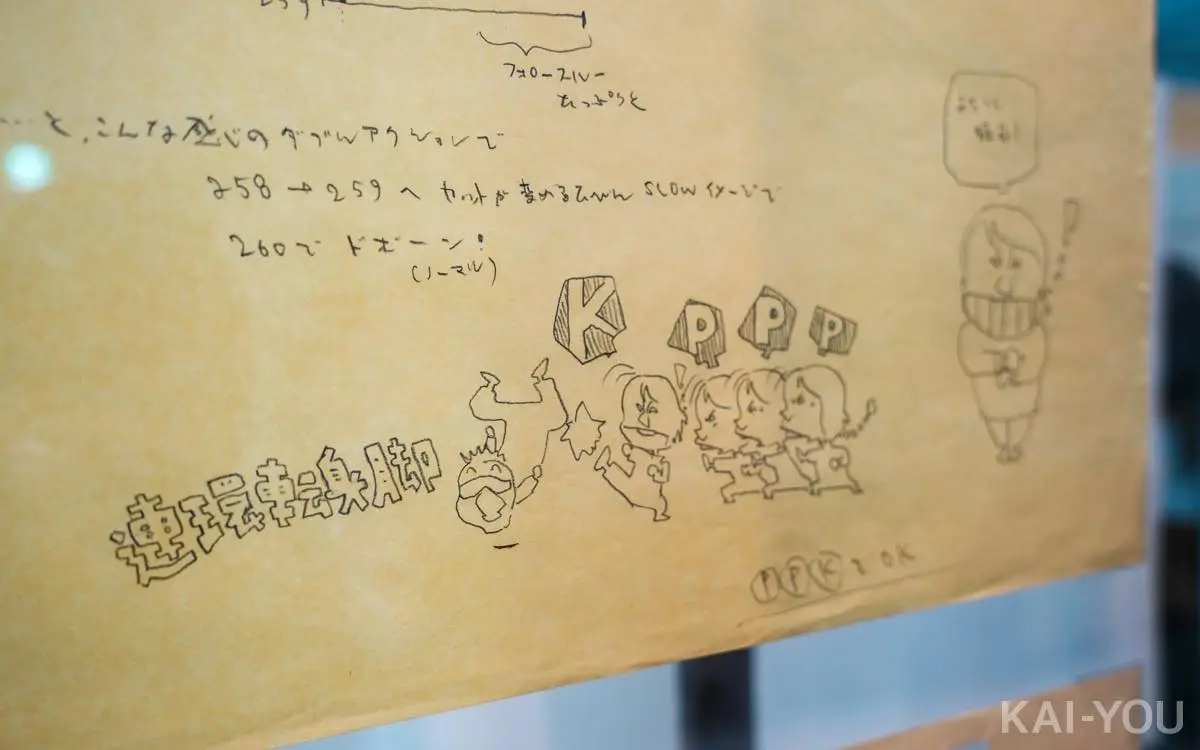 259
フォロースルー
たっぷりと
…と、こんな感じのダブルアクションで
258→259へ カットが変わる SLOWイメージで
260で ドボーン!
(ノーマル)
K P P P
連環転身脚
PPKでOK
KAI-YOU